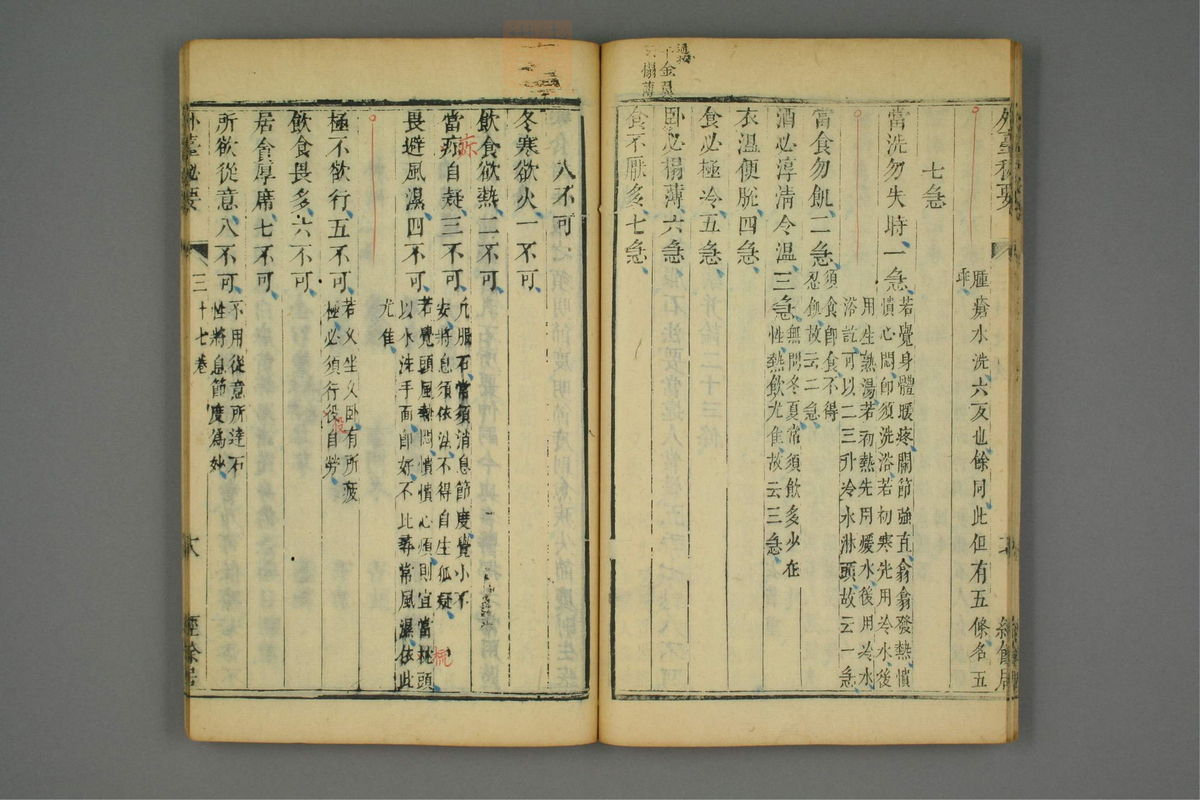 腫瘡水洗六及也餘同此但有五條名五
乖
七急
當洗勿失時一急
若覺身體暖疼關節強直翕翕發熱憒
憒心悶即須洗浴若初寒先用冷水後
用生熟湯若初熱先用煖水後用冷水
浴訖可以二三升冷水淋頭故云一急
當食勿飢二急
須食即食不得
忍飢故云二急
酒必淳清令溫三急
無問冬夏常須飲多少在
性熱飲尤佳故云三急
衣溫便脫四急
食必極冷五急
臥必榻薄六急
食不厭多七急
八不可
冬寒欲火一不可
飲食欲熱二不可
當疹自疑三不可
凡服石常須消息節度覺小不
安將息須依法不得自生狐疑
畏避風濕四不可
若覺頭風熱悶憒憒心煩則宜當梳頭
以水洗手面即好不比尋常風濕依此
尤佳
極不欲行五不可
若久坐久臥有所疲
極必須行役自勞
飲食畏多六不可
居貪厚席七不可
所欲從意八不可
不用從意所達石
性將息節度為妙
外臺秘要
三十七卷
六
經餘居